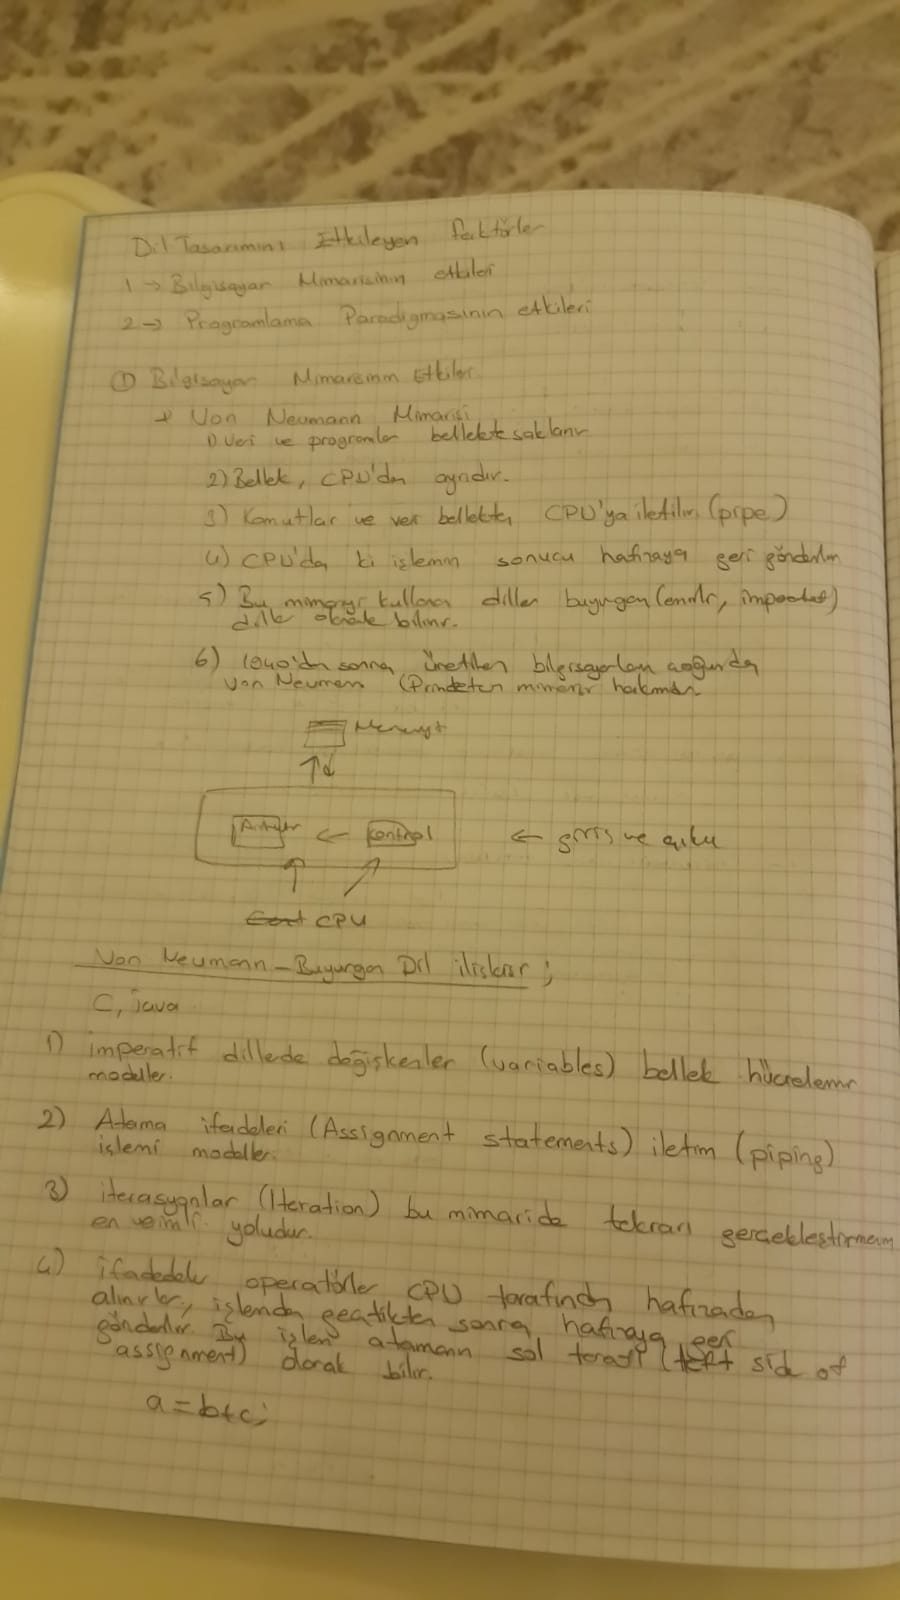 Dil Tasarımını Etkileyen faktörler
1 → Bilgisayar Mimarisinin etkileri
2 → Programlama Paradigmasının etkileri
① Bilgisayar Mimarisinin Etkiler
Von Neumann Mimarisi
1) Veri ve programlar bellekte saklanır
2) Bellek, CPU'dan ayrıdır.
3) Komutlar ve veri bellekten CPU'ya iletilir. (pipe)
4) CPU'da ki işlemin sonucu hafızaya geri gönderilir
5) Bu mimariyi kullanan diller buyurgan (emir,
diller olarak bilinir.
6) 1940'dan sonra üretilen bilgisayarların çoğunda
Von Neumann (Princeton mimarisi hakimdir.
Memory
Kontrol
← giriş ve çıkış
CPU
Von Neumann - Buyurgan Dil ilişkisi ;
C, java
1) imperatif dillerde değişkenler (variables) bellek hücrelerini
modeller.
2) Atama ifadeleri (Assignment statements) iletim (piping)
işlemi modeller.
3) iterasyonlar (Iteration) bu mimaride tekrarı gerçekleştirmenin
en verimli yoludur.
4) ifadedeki operatörler CPU tarafından hafızadan
alınırlar, işlemden geçtikten sonra hafızaya geri
gönderilir. Bu işlem atamanın sol tarafı (left side of
assignment) olarak bilir.
a = b+c;